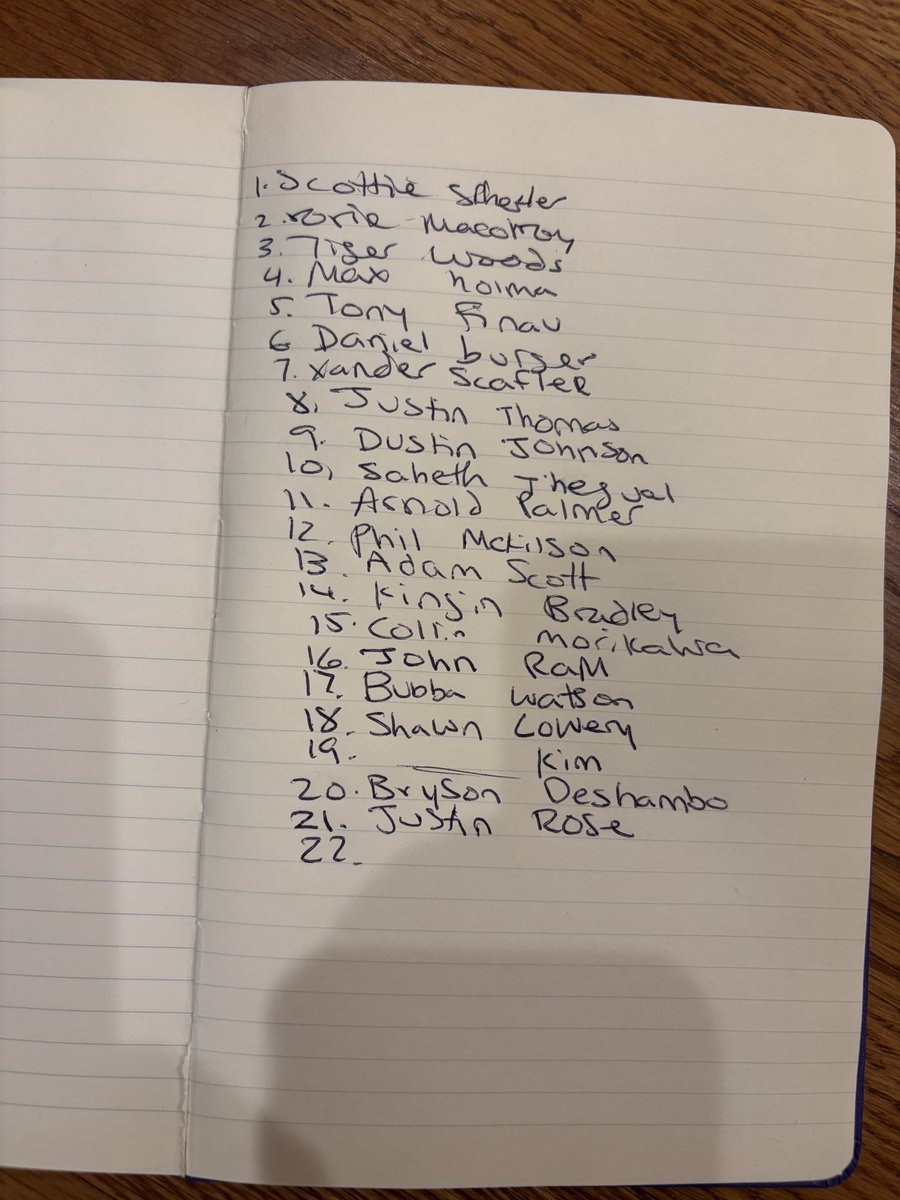 1. Scottie Sfhefler
2. rorie Macorroy
3. Tiger Woods
4. Max holma
5. Tony finau
6 Daniel burger
7. xander Scafler
8. Justin Thomas
9. Dustin Johnson
10, Saheth Thegual
11. Arnold Palmer
12. Phil Mckilson
13. Adam Scott
14. Kingin Bradley
15. Collin Morikawa
16. John RaM
17. Bubba watson
18. Shawn Lowery
19. ______ Kim
20. Bryson Deshambo
21. Justin Rose
22.